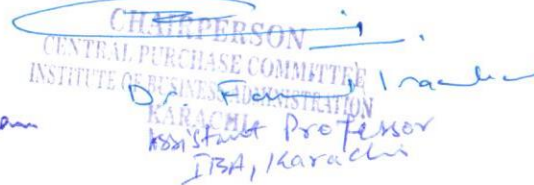 CHAIRPERSON
CENTRAL PURCHASE COMMITTEE
INSTITUTE OF BUSINESS ADMINISTRATION
KARACHI
Dr.
Assistant Professor
IBA, Karachi